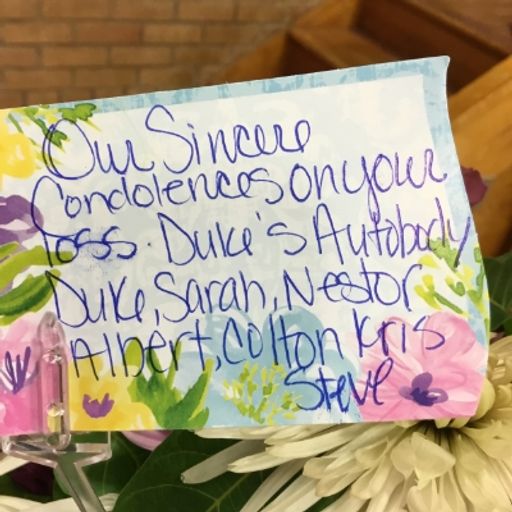 Our Sincere
Condolences on your
loss. Duke's Autobody
Duke, Sarah, Nestor
Albert, Colton Kris
Steve